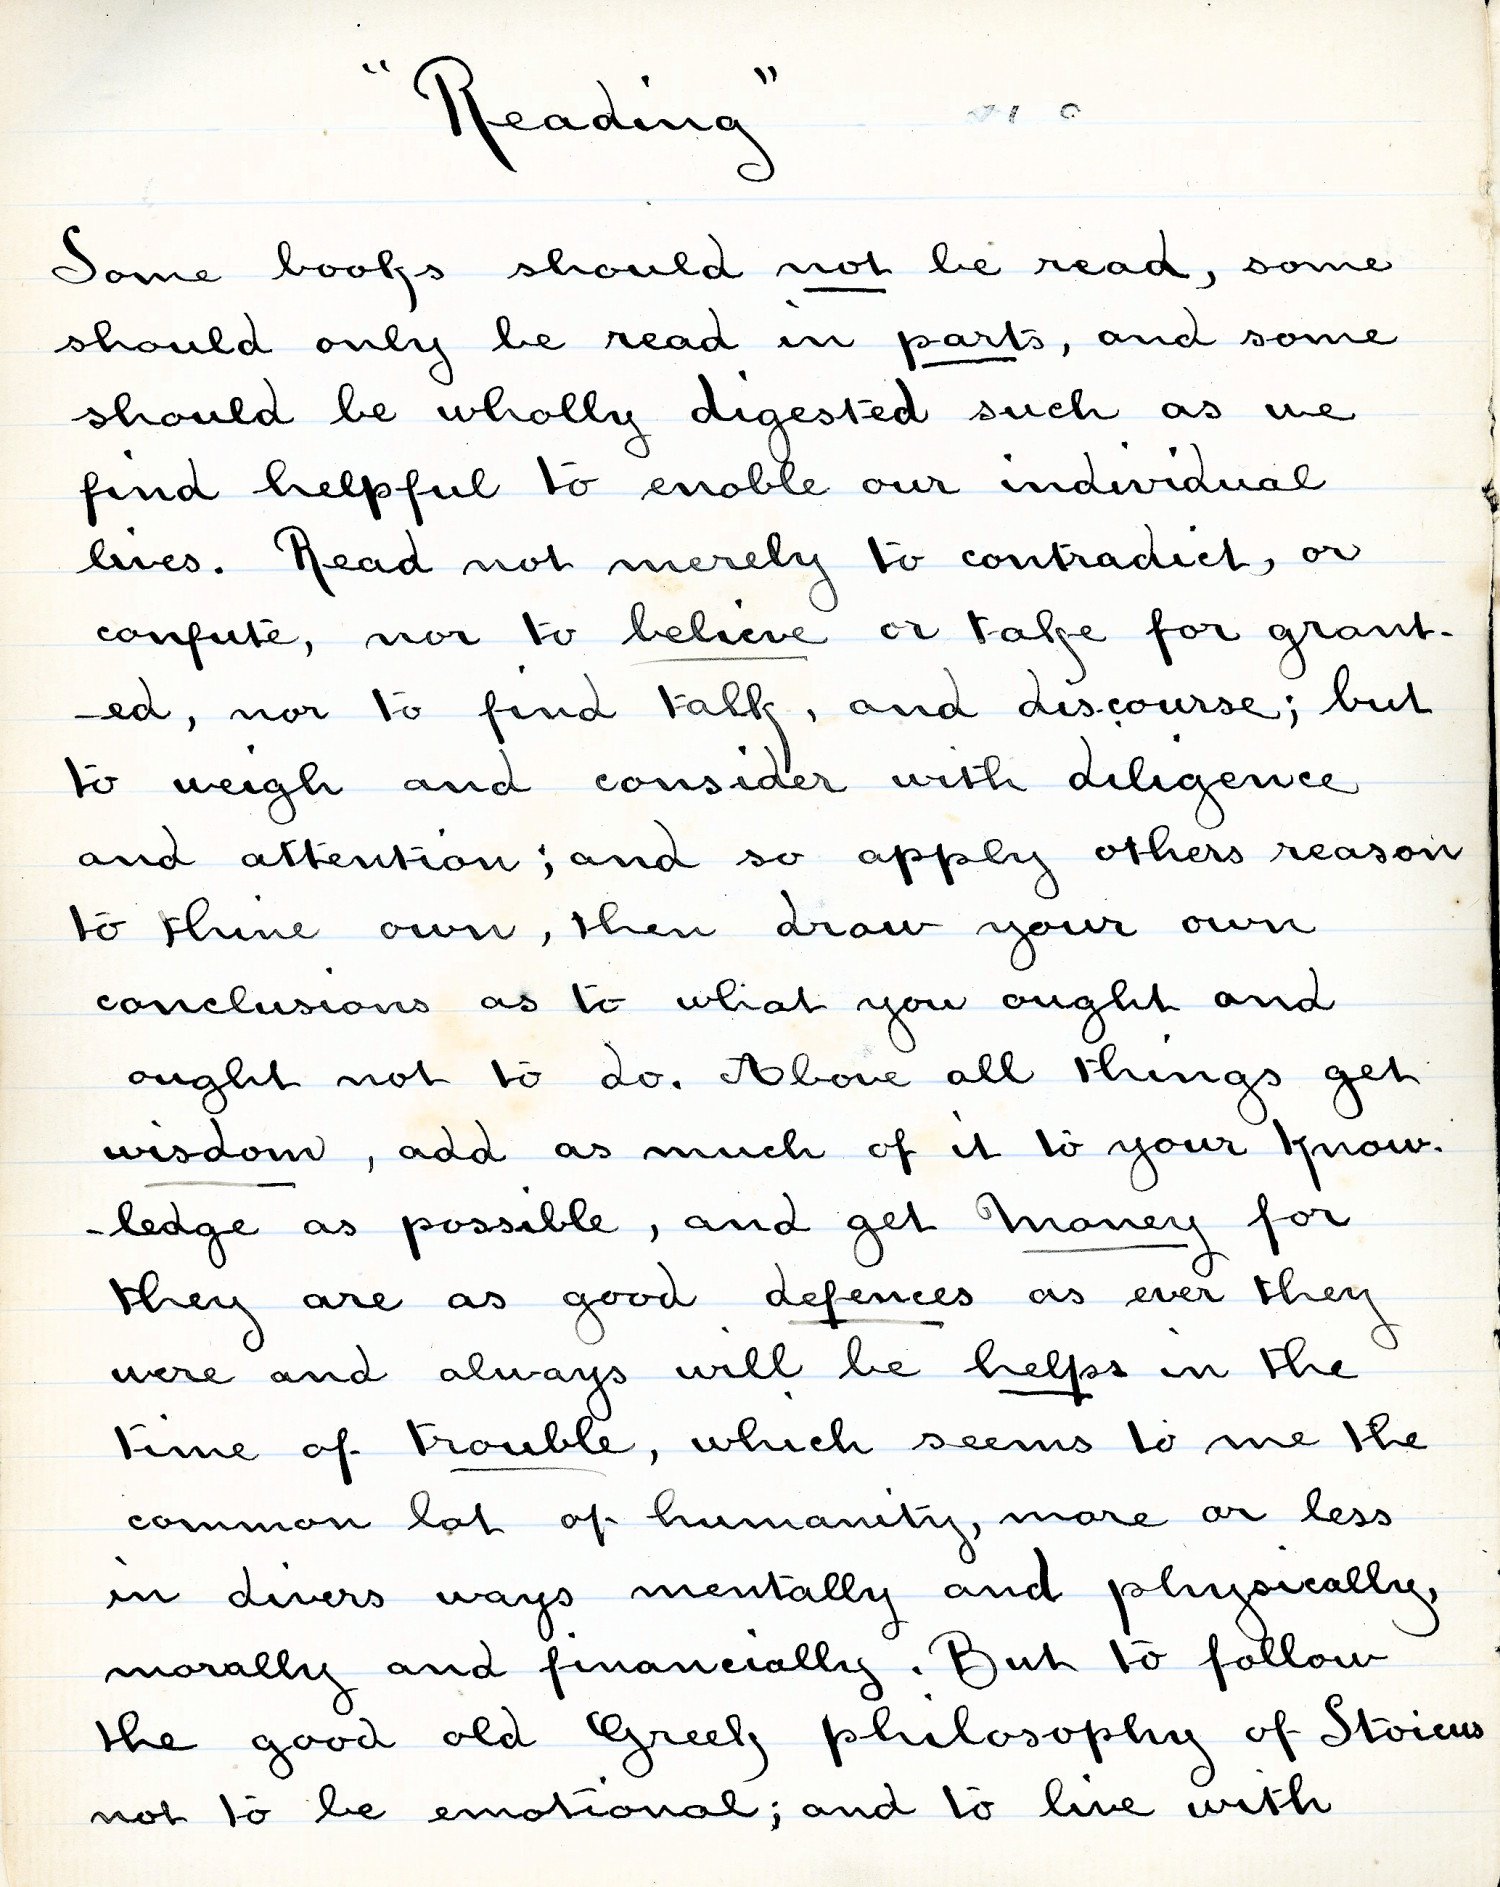 "Reading"
Some books should not be read, some
should only be read in parts, and some
should be wholly digested such as we
find helpful to enoble our individual
lives. Read not merely to contradict, or
confute, nor to believe or take for grant-
-ed, nor to find talk, and discourse; but
to weigh and consider with diligence
and attention; and so apply others reason
to thine own, then draw your own
conclusions as to what you ought and
ought not to do. Above all things get
wisdom, add as much of it to your know-
-ledge as possible, and get Money for
they are as good defences as ever they
were and always will be helps in the
time of trouble, which seems to me the
common lot of humanity, more or less
in divers ways mentally and physically,
morally and financially. But to follow
the good old Greek philosophy of Stoicus
not to be emotional; and to live with